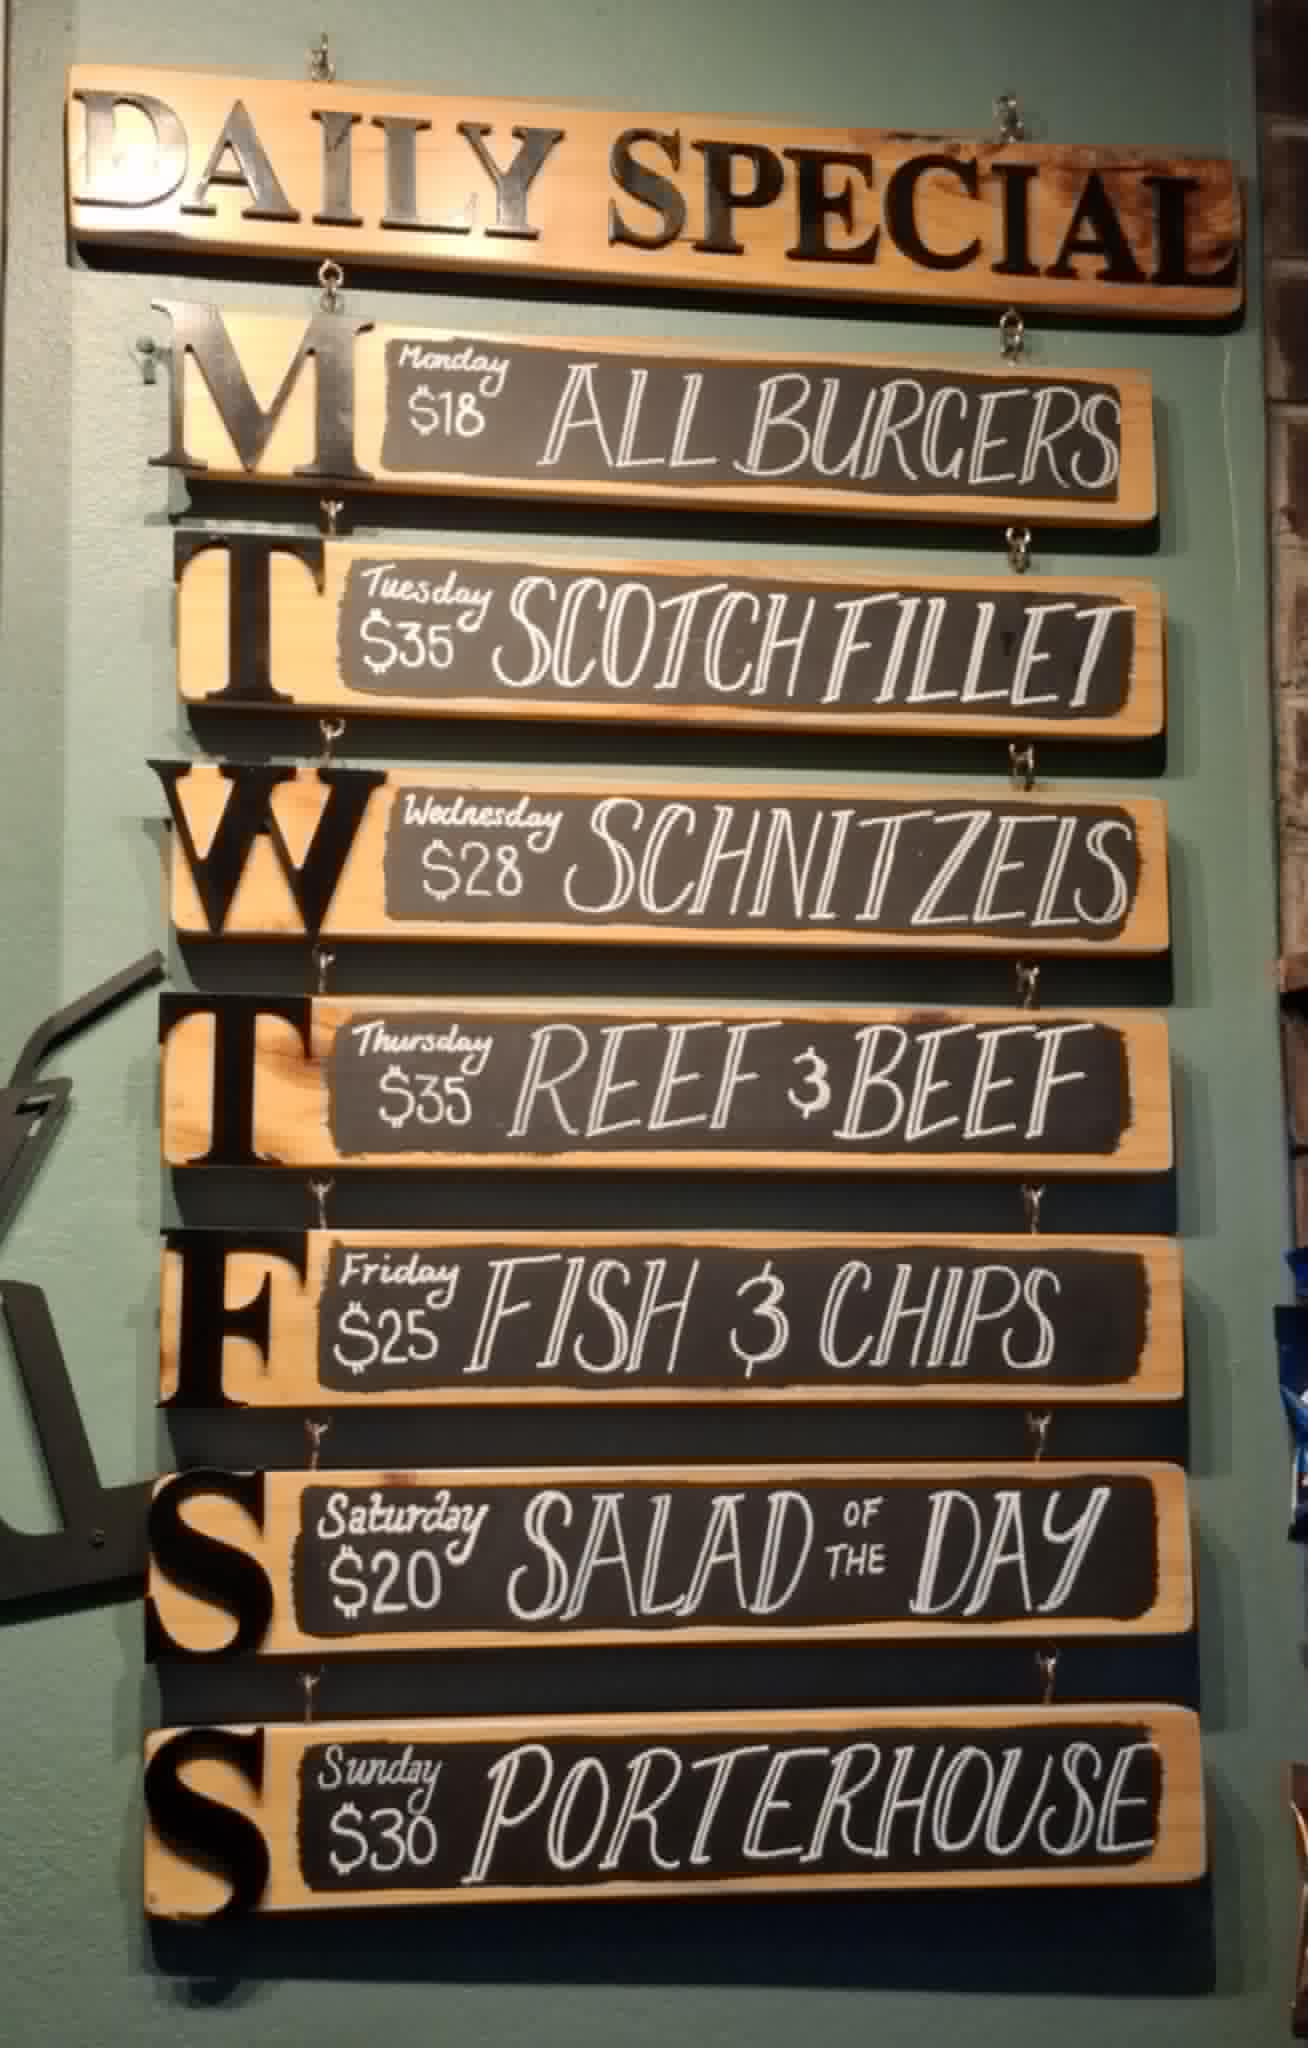 DAILY SPECIAL
M
Monday
$18 ALL BURGERS
T
Tuesday
$35 SCOTCH FILLET
W
Wednesday
$28 SCHNITZELS
T
Thursday
$35 REEF & BEEF
F
Friday
$25 FISH & CHIPS
S
Saturday
$20 SALAD OF THE DAY
S
Sunday
$30 PORTERHOUSE